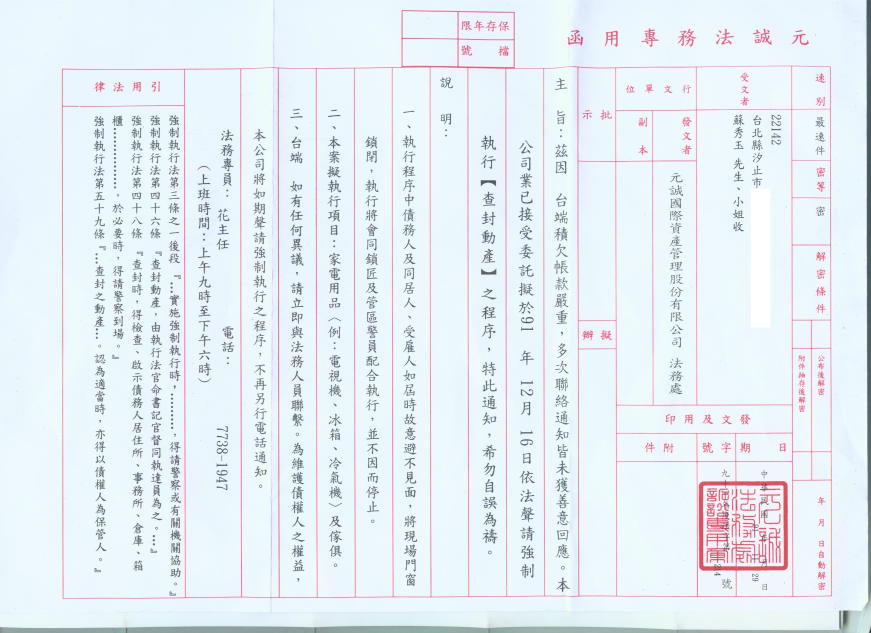 元誠法務專用函
保存年限
檔號
速別
最速件
密等
密
解密條件
公布後解密
附件抽存後解密
年 月 日自動解密
受文者
22142
台北縣汐止市
蘇秀玉 先生、小姐收
行文單位
發文者
元誠國際資產管理股份有限公司 法務處
副本
發文及用印
日期
字號
附件
中華民國
號
批示
擬辦
主 旨：茲因 台端積欠帳款嚴重，多次聯絡通知皆未獲善意回應。本
公司業已接受委託擬於91 年 12月 16日依法聲請強制
執行【查封動產】之程序，特此通知，希勿自誤為禱。
說 明：
一、執行程序中債務人及同居人、受雇人如屆時故意避不見面，將現場門窗
鎖閉，執行將會同鎖匠及管區警員配合執行，並不因而停止。
二、本案擬執行項目：家電用品〈例：電視機、冰箱、冷氣機〉及傢俱。
三、台端 如有任何異議，請立即與法務人員聯繫。為維護債權人之權益，
本公司將如期聲請強制執行之程序，不再另行電話通知。
法務專員： 花主任 電話： 7738-1947
（上班時間：上午九時至下午六時）
引用法律
強制執行法第三條之一後段 『…實施強制執行時，………，得請警察或有關機關協助。』
強制執行法第四十六條 『查封動產，由執行法官命書記官督同執達員為之。…』
強制執行法第四十八條 『查封時，得檢查、啟示債務人居住所、事務所、倉庫、箱
櫃………………。於必要時，得請警察到場。』
強制執行法第五十九條 『…查封之動產…。認為適當時，亦得以債權人為保管人。』